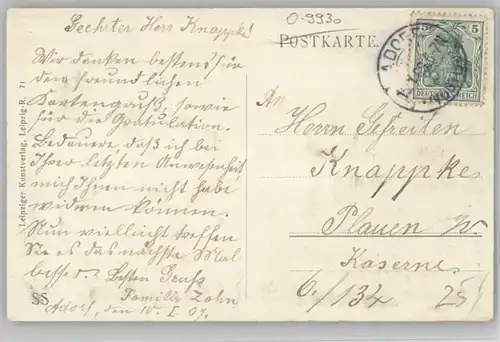 Geehrter Herr Knappke!
O-9930
POSTKARTE.
Wir danken bestens für
den freundlichen
Kartengruß, sowie
für die Gratulation.
Bedauere, daß ich bei
Ihrer letzten Anwesenheit
mich Ihnen nicht habe
widmen können.
Nun vielleicht treffen
Sie es das nächste Mal
besser. Besten Gruß
Familie Zahn
Adorf, den 10. I 09.
SS
Leipziger Kunstverlag, Leipzig-R. 71
ADORF
5 5
DEUTSCHES REICH
An
Herrn Gefreiten
Knappke
Plauen i/V
Kaserne
6./134 25